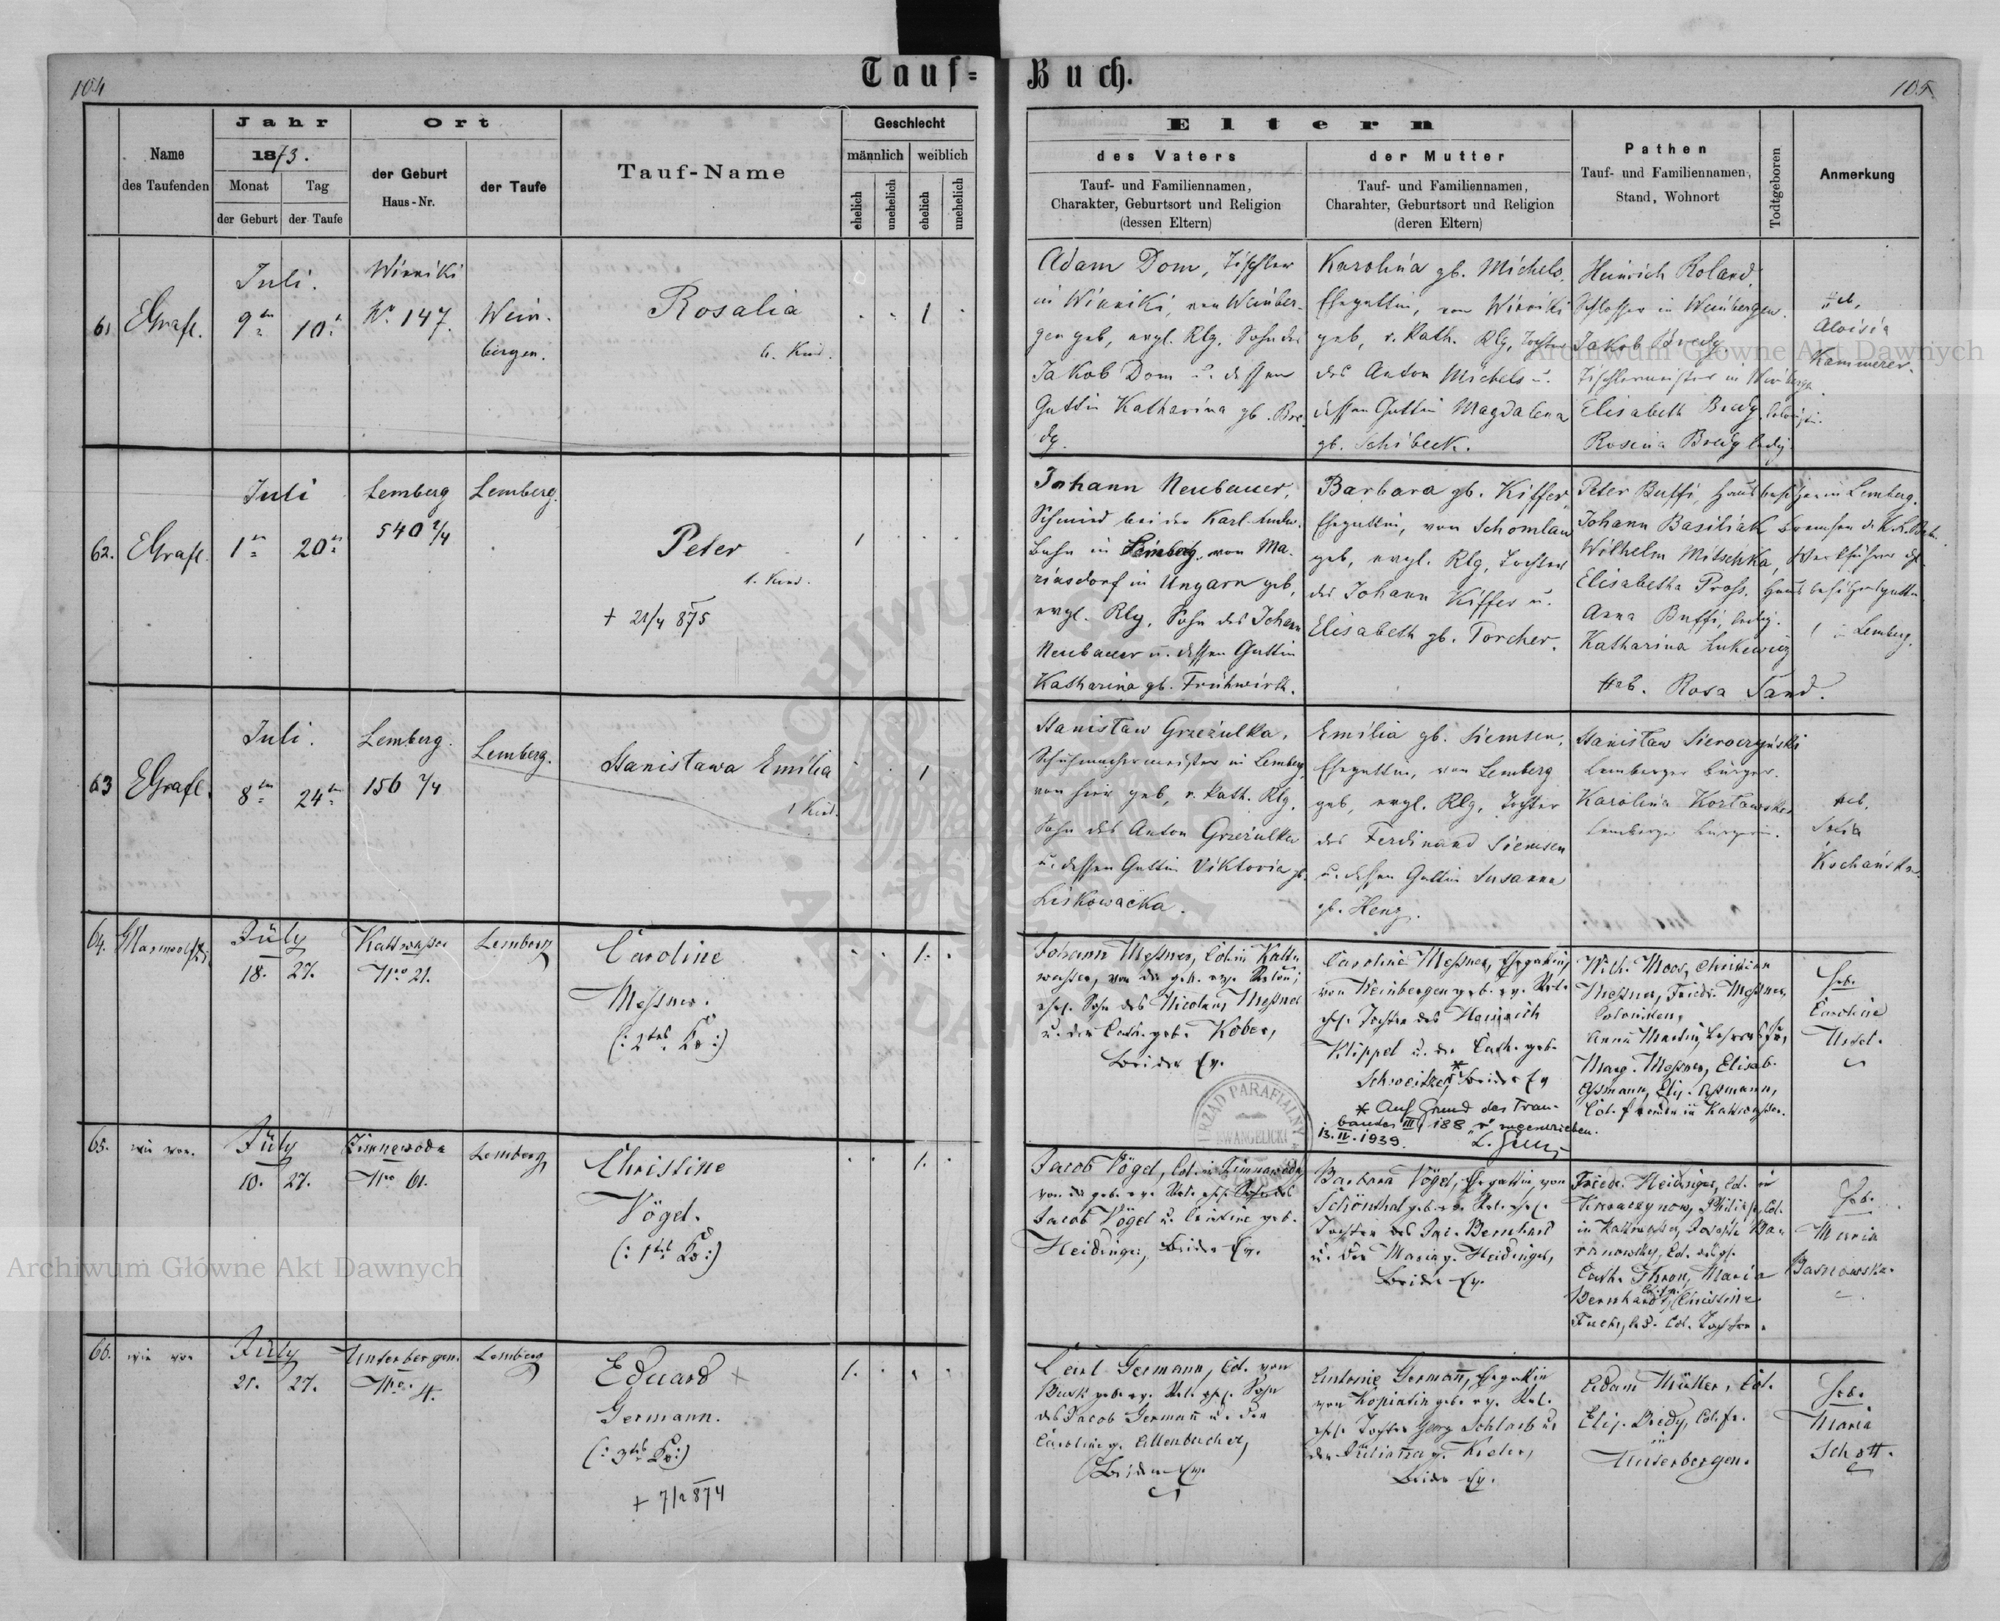 104
Tauf-
Buch.
105
Name
des Taufenden
Jahr
1873.
Monat
der Geburt
Tag
der Taufe
Ort
der Geburt
Haus-Nr.
der Taufe
Tauf-Name
Geschlecht
männlich
weiblich
ehelich
unehelich
ehelich
unehelich
Eltern
des Vaters
Tauf- und Familiennamen,
Charakter, Geburtsort und Religion
(dessen Eltern)
der Mutter
Tauf- und Familiennamen,
Charahter, Geburtsort und Religion
(deren Eltern)
Pathen
Tauf- und Familiennamen,
Stand, Wohnort
Todtgeboren
Anmerkung
61
EGrafl.
Juli.
9
10
Winniki
Nº 147.
Wein-
bergen.
Rosalia
6. Kind.
1
Adam Dom, Tischler
in Winniki, von Weinber-
gen geb, evgl. Rlg, Sohn des
Jakob Dom u. dessen
Gattin Katharina gb. Bre-
dy.
Karolina gb. Michels,
Ehegattin, von Winniki
geb, r. kath. Rlg, Tochter
des Anton Michels u.
dessen Gattin Magdalena
gb. Schibeck.
Heinrich Roland,
Schlosser in Weinbergen.
Jakob Bredy
Tischlermeister in Weinbergen
Elisabeth Bredy
Rosina Bredy ledig
Heb.
Aloisia
Kammerer.
62.
EGrafl.
Juli
1
20
Lemberg
540 2/4
Lemberg.
Peter
1. Kind.
+ 21/4 875
1
Johann Neubauer,
Schmied bei der Karl. Ludw.
Bahn in Lemberg, von Ma-
riasdorf in Ungarn geb,
evgl. Rlg, Sohn des Johann
Neubauer u. dessen Gattin
Katharina gb. Frühwirth.
Barbara gb. Kiffer,
Ehegattin, von Schomlau
geb, evgl. Rlg, Tochter
des Johann Kiffer u.
Elisabeth gb. Torcher.
Peter Buffi, Hausbesitzer in Lemberg.
Johann Basiliak
Wilhelm Mitschka, Werkführer
Elisabetha Pross. Hausbesitzersgattin
Anna Buffi, ledig.
Katharina Lukewicz
in Lemberg.
Heb. Rosa Sand.
63
EGrafl.
Juli.
8
24
Lemberg.
156 2/4
Lemberg.
Stanisława Emilia
1 Kind.
1
Stanisław Grzezulka,
Schuhmachermeister in Lemberg,
von hier geb, r. kath. Rlg,
Sohn des Anton Grzezulka
u. dessen Gattin Viktoria gb.
Liskowacka.
Emilia gb. Siemsen,
Ehegattin, von Lemberg
geb, evgl. Rlg, Tochter
des Ferdinand Siemsen
u. dessen Gattin Susanna
gb. Henz.
Stanisław Sieroczyński
Lemberger Bürger.
Karolina Kozłowska
Lemberger Bürgerin.
Heb.
Kochańska
64.
July
18. 27.
Kaltwasser
Nro 21.
Lemberg
Caroline
Messner.
(: 2tes Kd :)
1.
Johann Meßner, Col. in Kaltw
wasser, von da geb. ev. Relon;
ehel. Sohn des Nicolaus Meßner
u. der Cath. geb. Kober,
beide Ev.
Caroline Meßner, Ehegattin
von Weinbergen geb. ev. Rel.
ehel. Tochter des Heinrich
Klippel u. der Cath. geb.
Schweitzer* beide Ev
* Auf Grund des Trau-
bandes III, 188 zugeschrieben.
13.IV.1939.
Wilh. Moos, Christian
Meßner, Friedr. Meßner,
Colonisten,
Marg. Meßner, Elisab.
Aßmann, Elis. Aßmann,
Col. frauen in Kaltwasser.
Heb.
Caroline
URZĄD PARAFIALNY
EWANGELICKI
65.
wie vor.
July
10. 27.
Zimnewoda
Nro 61.
Lemberg
Christine
Vögel.
(: 1tes Kd :)
1.
Jacob Vögel, Col. in Zimnawoda
von da geb. ev. Rel. ehel. Sohn des
Jacob Vögel u. Christine geb.
Heidinger, beide Ev.
Barbara Vögel, Ehegattin, von
Schönthal geb. ev. Rel. ehel.
Tochter des Jac. Bernhard
u. der Maria g. Heidinger,
beide Ev.
Friedr. Heidinger, Col. in
Cath. Thron, Maria
Bernhardt, Christine
Fuchs, led. Col. Tochter.
Heb.
Maria
Basnowska.
66.
wie vor
July
21. 27.
Unterbergen.
Nro. 4.
Lemberg
Eduard +
Germann.
(: 3tes Kd :)
+ 7/2 874
1.
Carl Germann, Col. von
des Jacob Germann u. der
Caroline g. Ellenbacher,
beide Ev.
Antonie Germann, Ehegattin
von Kopiatin geb. ev. Rel.
ehel. Tochter Georg Schlarb u
der Juliana g. Kieler,
beide Ev.
Adam Müller, Col.
Elis. Bredy, Col. fr.
in
Unterbergen.
Heb.
Maria
Schott.
Archiwum Główne Akt Dawnych
Archiwum Główne Akt Dawnych